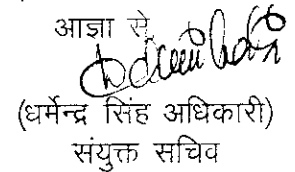 आज्ञा से,
(धर्मेन्द्र सिंह अधिकारी)
संयुक्त सचिव